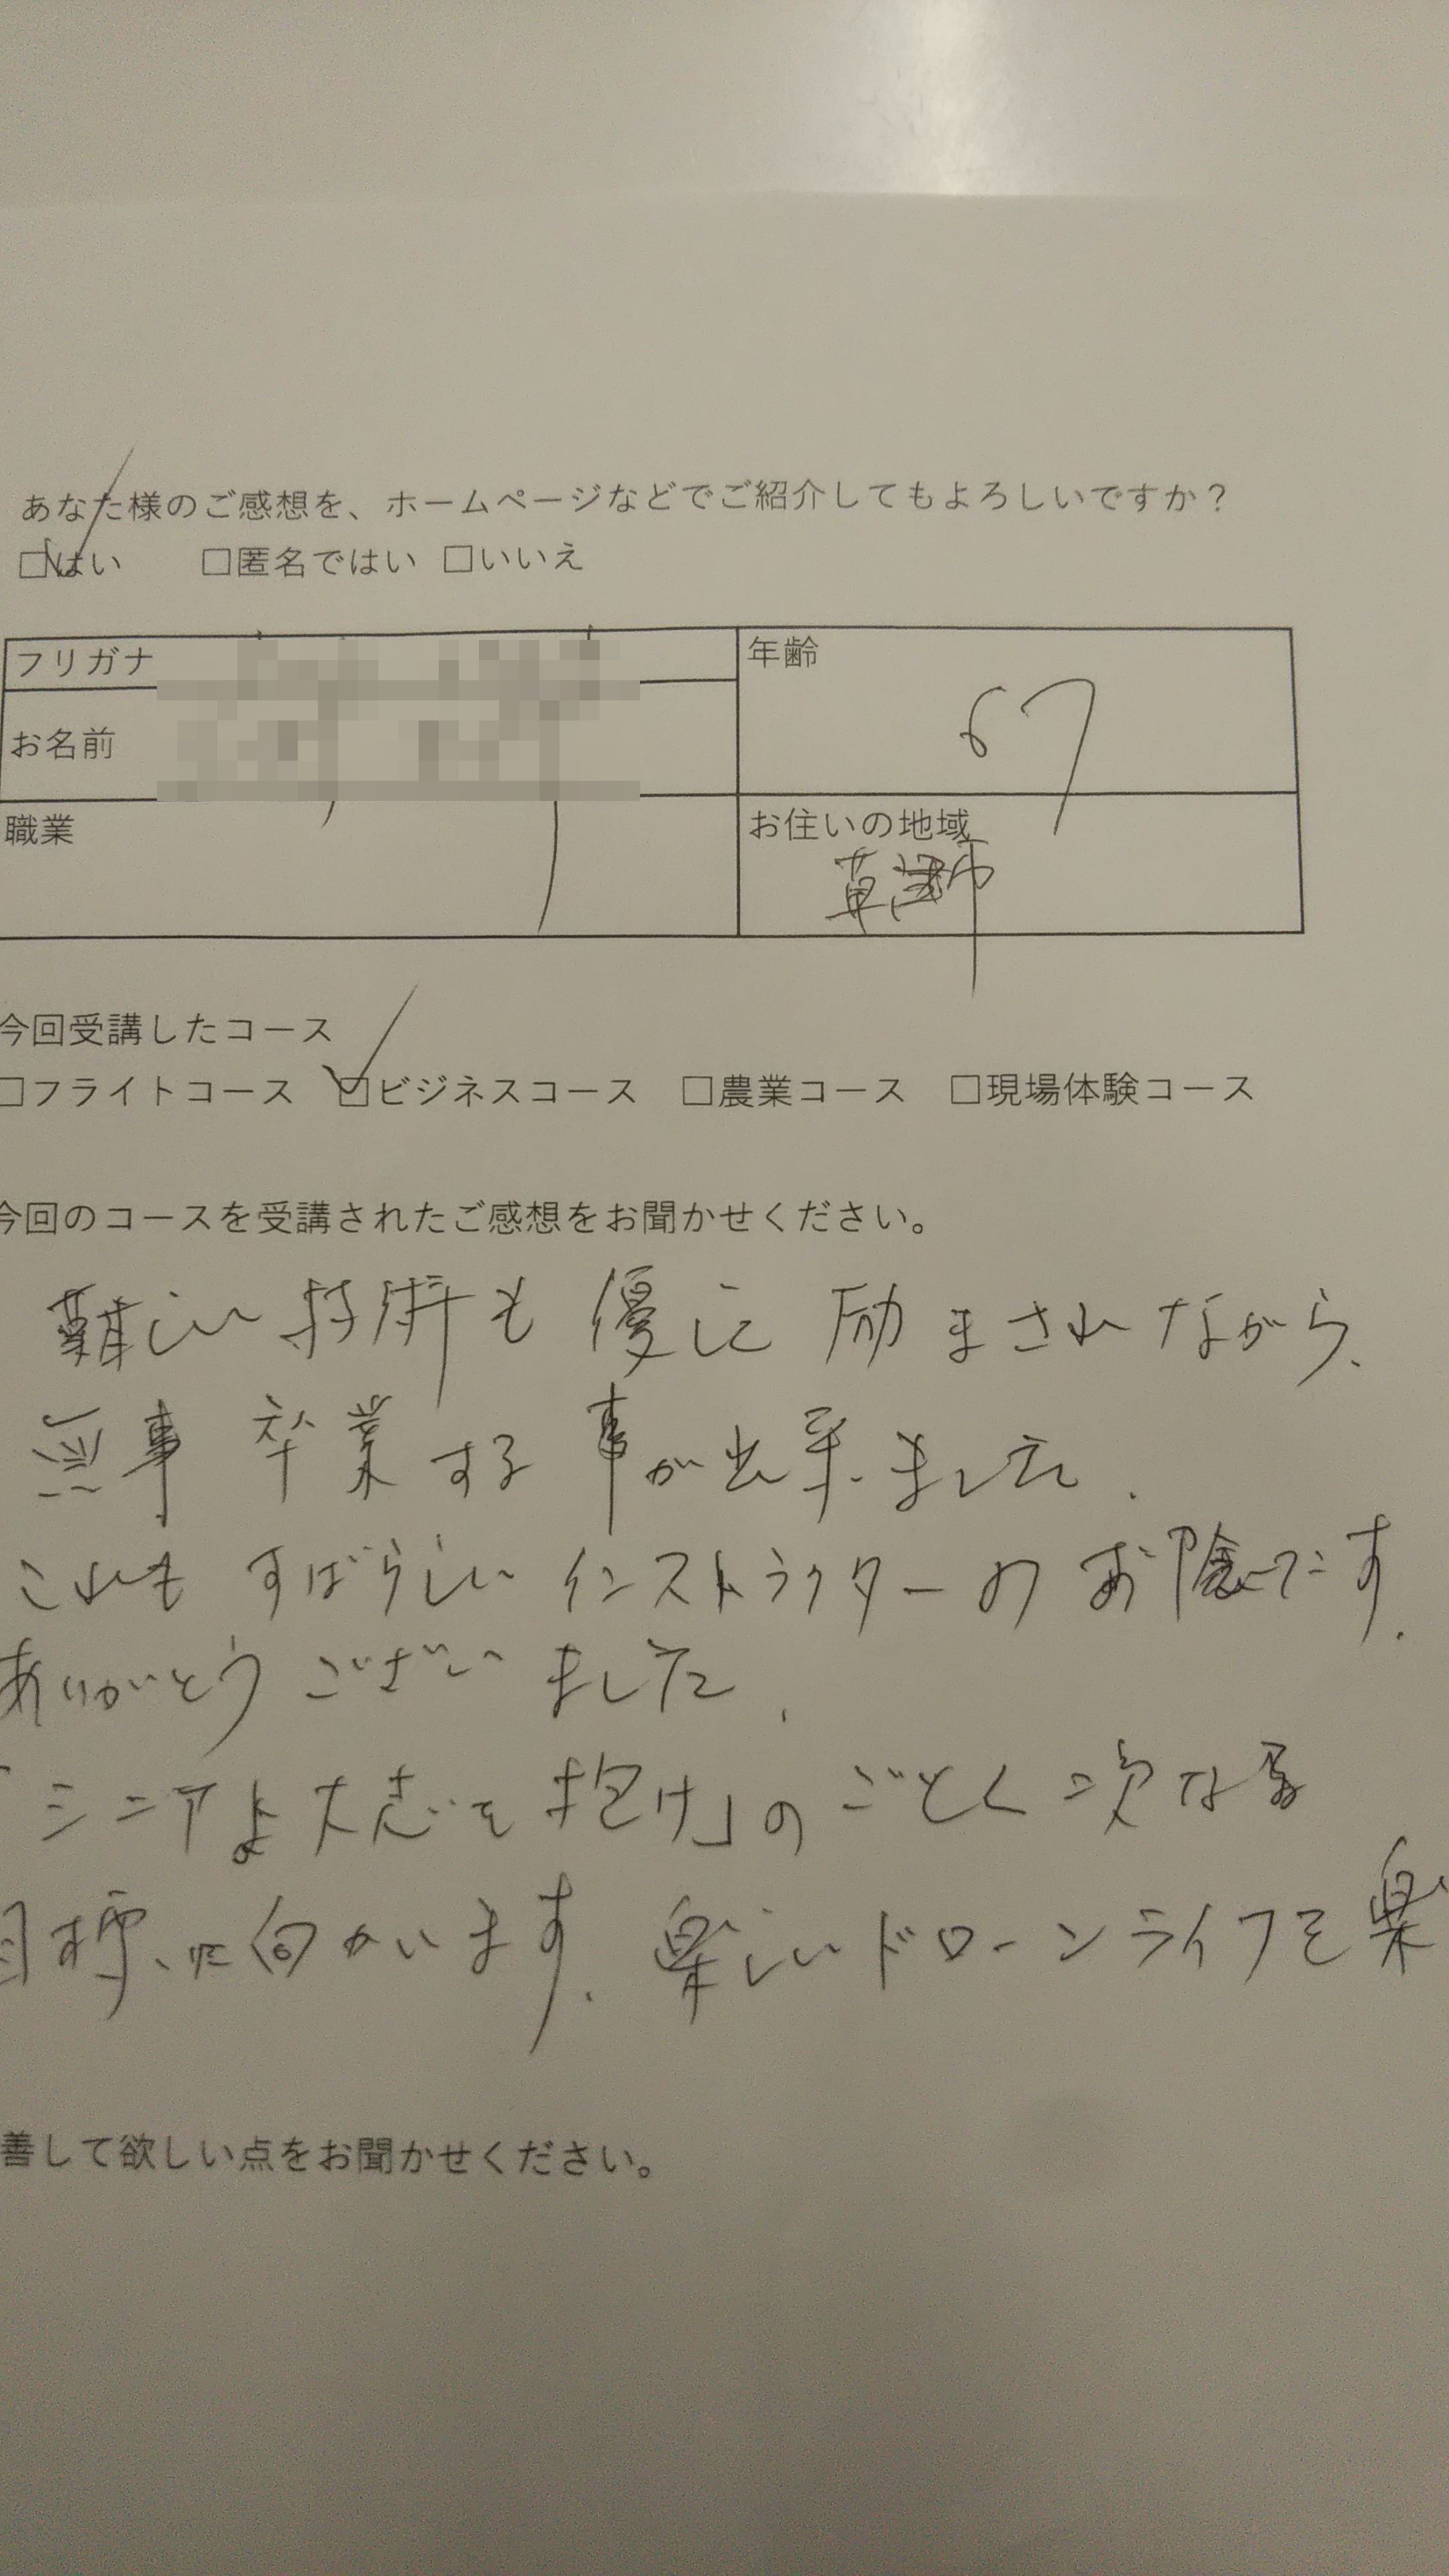 あなた様のご感想を、ホームページなどでご紹介してもよろしいですか?
□はい □匿名ではい □いいえ
フリガナ
年齢
67
お名前
職業
お住いの地域
草津市
今回受講したコース
□フライトコース ☑ビジネスコース □農業コース □現場体験コース
今回のコースを受講されたご感想をお聞かせください。
難しい技術も優しく励まされながら、
無事卒業する事が出来ました.
これもすばらしいインストラクターのお陰です.
ありがとうございました.
「シニアよ大志を抱け」のごとく次なる
目標に向かいます.楽しいドローンライフを楽
善して欲しい点をお聞かせください。